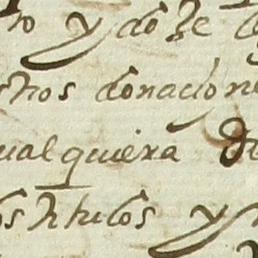 to y doze
chos donacion
ualquiera de
os titulos y